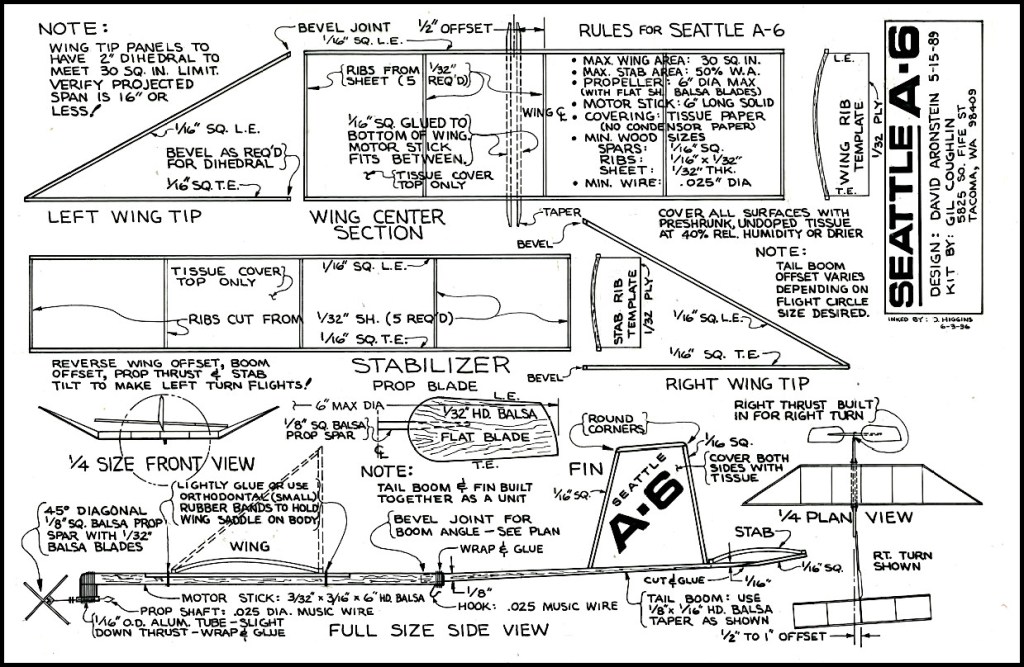 NOTE:
WING TIP PANELS TO
HAVE 2" DIHEDRAL TO
MEET 30 SQ. IN. LIMIT.
VERIFY PROJECTED
SPAN IS 16" OR
LESS!
BEVEL JOINT
1/16" SQ. L.E.
1/2" OFFSET
1/16" SQ. L.E.
BEVEL AS REQ'D
FOR DIHEDRAL
1/16" SQ. T.E.
LEFT WING TIP
RIBS FROM 1/32"
SHEET (5 REQ'D)
1/16" SQ. GLUED TO
BOTTOM OF WING.
MOTOR STICK
FITS BETWEEN.
TISSUE COVER
TOP ONLY
WING ℄
WING CENTER
SECTION
TAPER
BEVEL
RULES FOR SEATTLE A-6
• MAX. WING AREA: 30 SQ. IN.
• MAX. STAB AREA: 50% W.A.
• PROPELLER: 6" DIA MAX
(WITH FLAT SH. BALSA BLADES)
• MOTOR STICK: 6" LONG SOLID
• COVERING: TISSUE PAPER
(NO CONDENSOR PAPER)
• MIN. WOOD SIZES
SPARS: 1/16" SQ.
RIBS: 1/16" x 1/32"
SHEET: 1/32" THK.
• MIN. WIRE: .025" DIA
L.E.
WING RIB
TEMPLATE
1/32 PLY
T.E.
SEATTLE A•6
DESIGN: DAVID ARONSTEIN 5-15-89
KIT BY: GIL COUGHLIN
5825 SO. FIFE ST
TACOMA, WA 98409
INKED BY: J. HIGGINS
6-3-96
COVER ALL SURFACES WITH
PRESHRUNK, UNDOPED TISSUE
AT 40% REL. HUMIDITY OR DRIER
NOTE:
TAIL BOOM
OFFSET VARIES
DEPENDING ON
FLIGHT CIRCLE
SIZE DESIRED.
TISSUE COVER
TOP ONLY
1/16" SQ. L.E.
RIBS CUT FROM 1/32" SH. (5 REQ'D)
1/16" SQ. T.E.
STABILIZER
STAB RIB
TEMPLATE
1/32 PLY
1/16" SQ. L.E.
1/16" SQ. T.E.
BEVEL
RIGHT WING TIP
REVERSE WING OFFSET, BOOM
OFFSET, PROP THRUST & STAB
TILT TO MAKE LEFT TURN FLIGHTS!
1/4 SIZE FRONT VIEW
PROP BLADE
6" MAX DIA
L.E.
1/8" SQ. BALSA
PROP SPAR
℄
1/32" HD. BALSA
FLAT BLADE
T.E.
NOTE:
TAIL BOOM & FIN BUILT
TOGETHER AS A UNIT
ROUND
CORNERS
FIN
1/16" SQ.
1/16 SQ.
COVER BOTH
SIDES WITH
TISSUE
SEATTLE
A-6
RIGHT THRUST BUILT
IN FOR RIGHT TURN
1/4 PLAN VIEW
RT. TURN
SHOWN
1/2" TO 1" OFFSET
LIGHTLY GLUE OR USE
ORTHODONTAL (SMALL)
RUBBER BANDS TO HOLD
WING SADDLE ON BODY
45° DIAGONAL
1/8" SQ. BALSA PROP
SPAR WITH 1/32"
BALSA BLADES
WING
BEVEL JOINT FOR
BOOM ANGLE - SEE PLAN
WRAP & GLUE
STAB
1/16" SQ.
CUT & GLUE
1/16"
1/8"
MOTOR STICK: 3/32" x 3/16 x 6" HD. BALSA
PROP SHAFT: .025 DIA. MUSIC WIRE
HOOK: .025 MUSIC WIRE
1/16" O.D. ALUM. TUBE - SLIGHT
DOWN THRUST - WRAP & GLUE
TAIL BOOM: USE
1/8" x 1/16" HD. BALSA
TAPER AS SHOWN
FULL SIZE SIDE VIEW